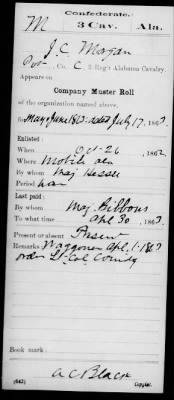 Confederate.
M 3 Cav. Ala.
J. C. Morgan
Pvt, Co. C, 3 Reg't Alabama Cavalry.
Appears on
Company Muster Roll
of the organization named above,
for May & June 1863. dated July 17, 1863.
Enlisted:
When Oct. 26, 1862.
Where Mobile Ala
By whom Maj Hessee
Period War
Last paid:
By whom Maj. Gibbons
To what time Apl 30, 1863.
Present or absent Present
Remarks: Waggoner Apl. 1-1863
order Lt. Col.
Book mark:
A C Black
(642) Copyist.